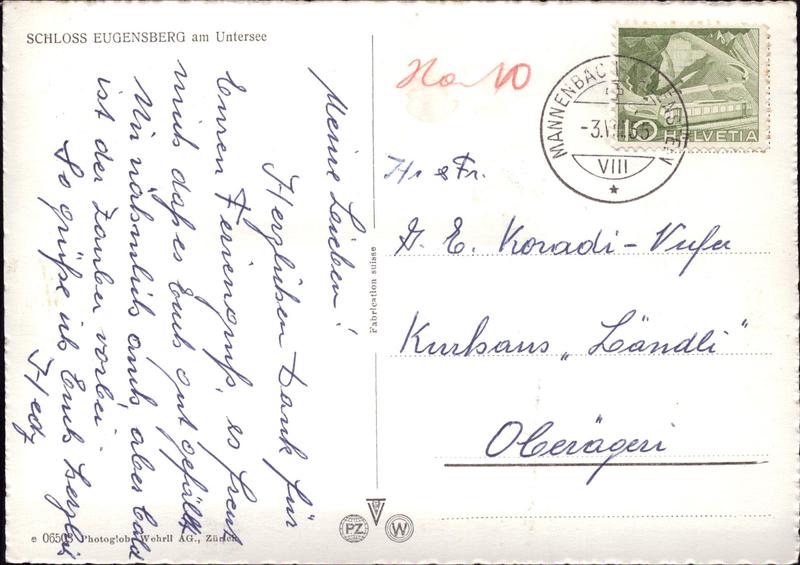 SCHLOSS EUGENSBERG am Untersee
Meine Lieben!
Herzlichen Dank für
Euren Feriengruß, es freut
mich daß es Euch gut gefällt
Mir nämlich auch, aber bald
ist der Zauber vorbei
So grüße ich Euch herzlich
Hedy
e 06503 Photoglob-Wehrli AG., Zürich
Fabrication suisse
PZ
W
No 10
MANNENBACH
-3.VIII.55
VIII
10 HELVETIA
Hr & Fr.
G. E. Koradi-
Kurhaus „Ländli"
Oberägeri